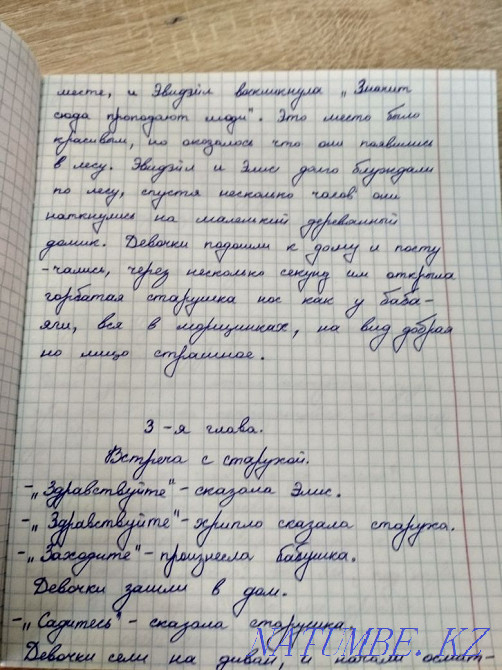 месте, и Эвидзил воткликнула „Значит
сюда проподают люди". Это место было
красивым, но оказалось что они появились
в лесу. Эвидзил и Элис долго блуждали
по лесу, спустя несколько часов они
наткнулись на маленький деревянный
домик. Девочки подошли к дому и посту
-чались, через несколько секунд им открыла
горбатая старушка нос как у баба-
яги, вся в морщинках, на вид добрая
но лицо страшное.
3-я глава.
Встреча с старухой.
-„Здравствуйте"-сказала Элис.
-„Здравствуйте"-хрипло сказала старуха.
-„Заходите"-произнесла бабушка.
Девочки зашли в дом.
-„Садитесь"- сказала старушка.
Девочки сели на диван, и начали осмат-
NATUMBE.KZ